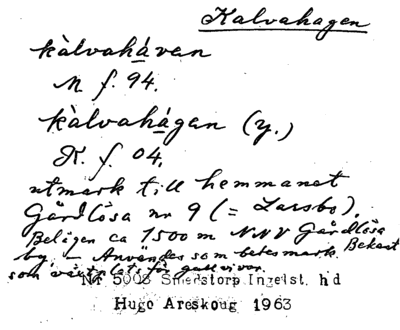 Kalvahagen
kàlvahávan
M f. 94.
kàlvahágan (y.)
K. f. 04.
utmark till hemmanet
Gårdlösa nr 9 (= Larsbo).
Belägen ca 1500 m NNV Gårdlösa
by. – Användes som betesmark. Bekant
som växtplats för gullvivor.
Nr 5003 Smedstorp Ingelst. hd
Hugo Areskoug 1963